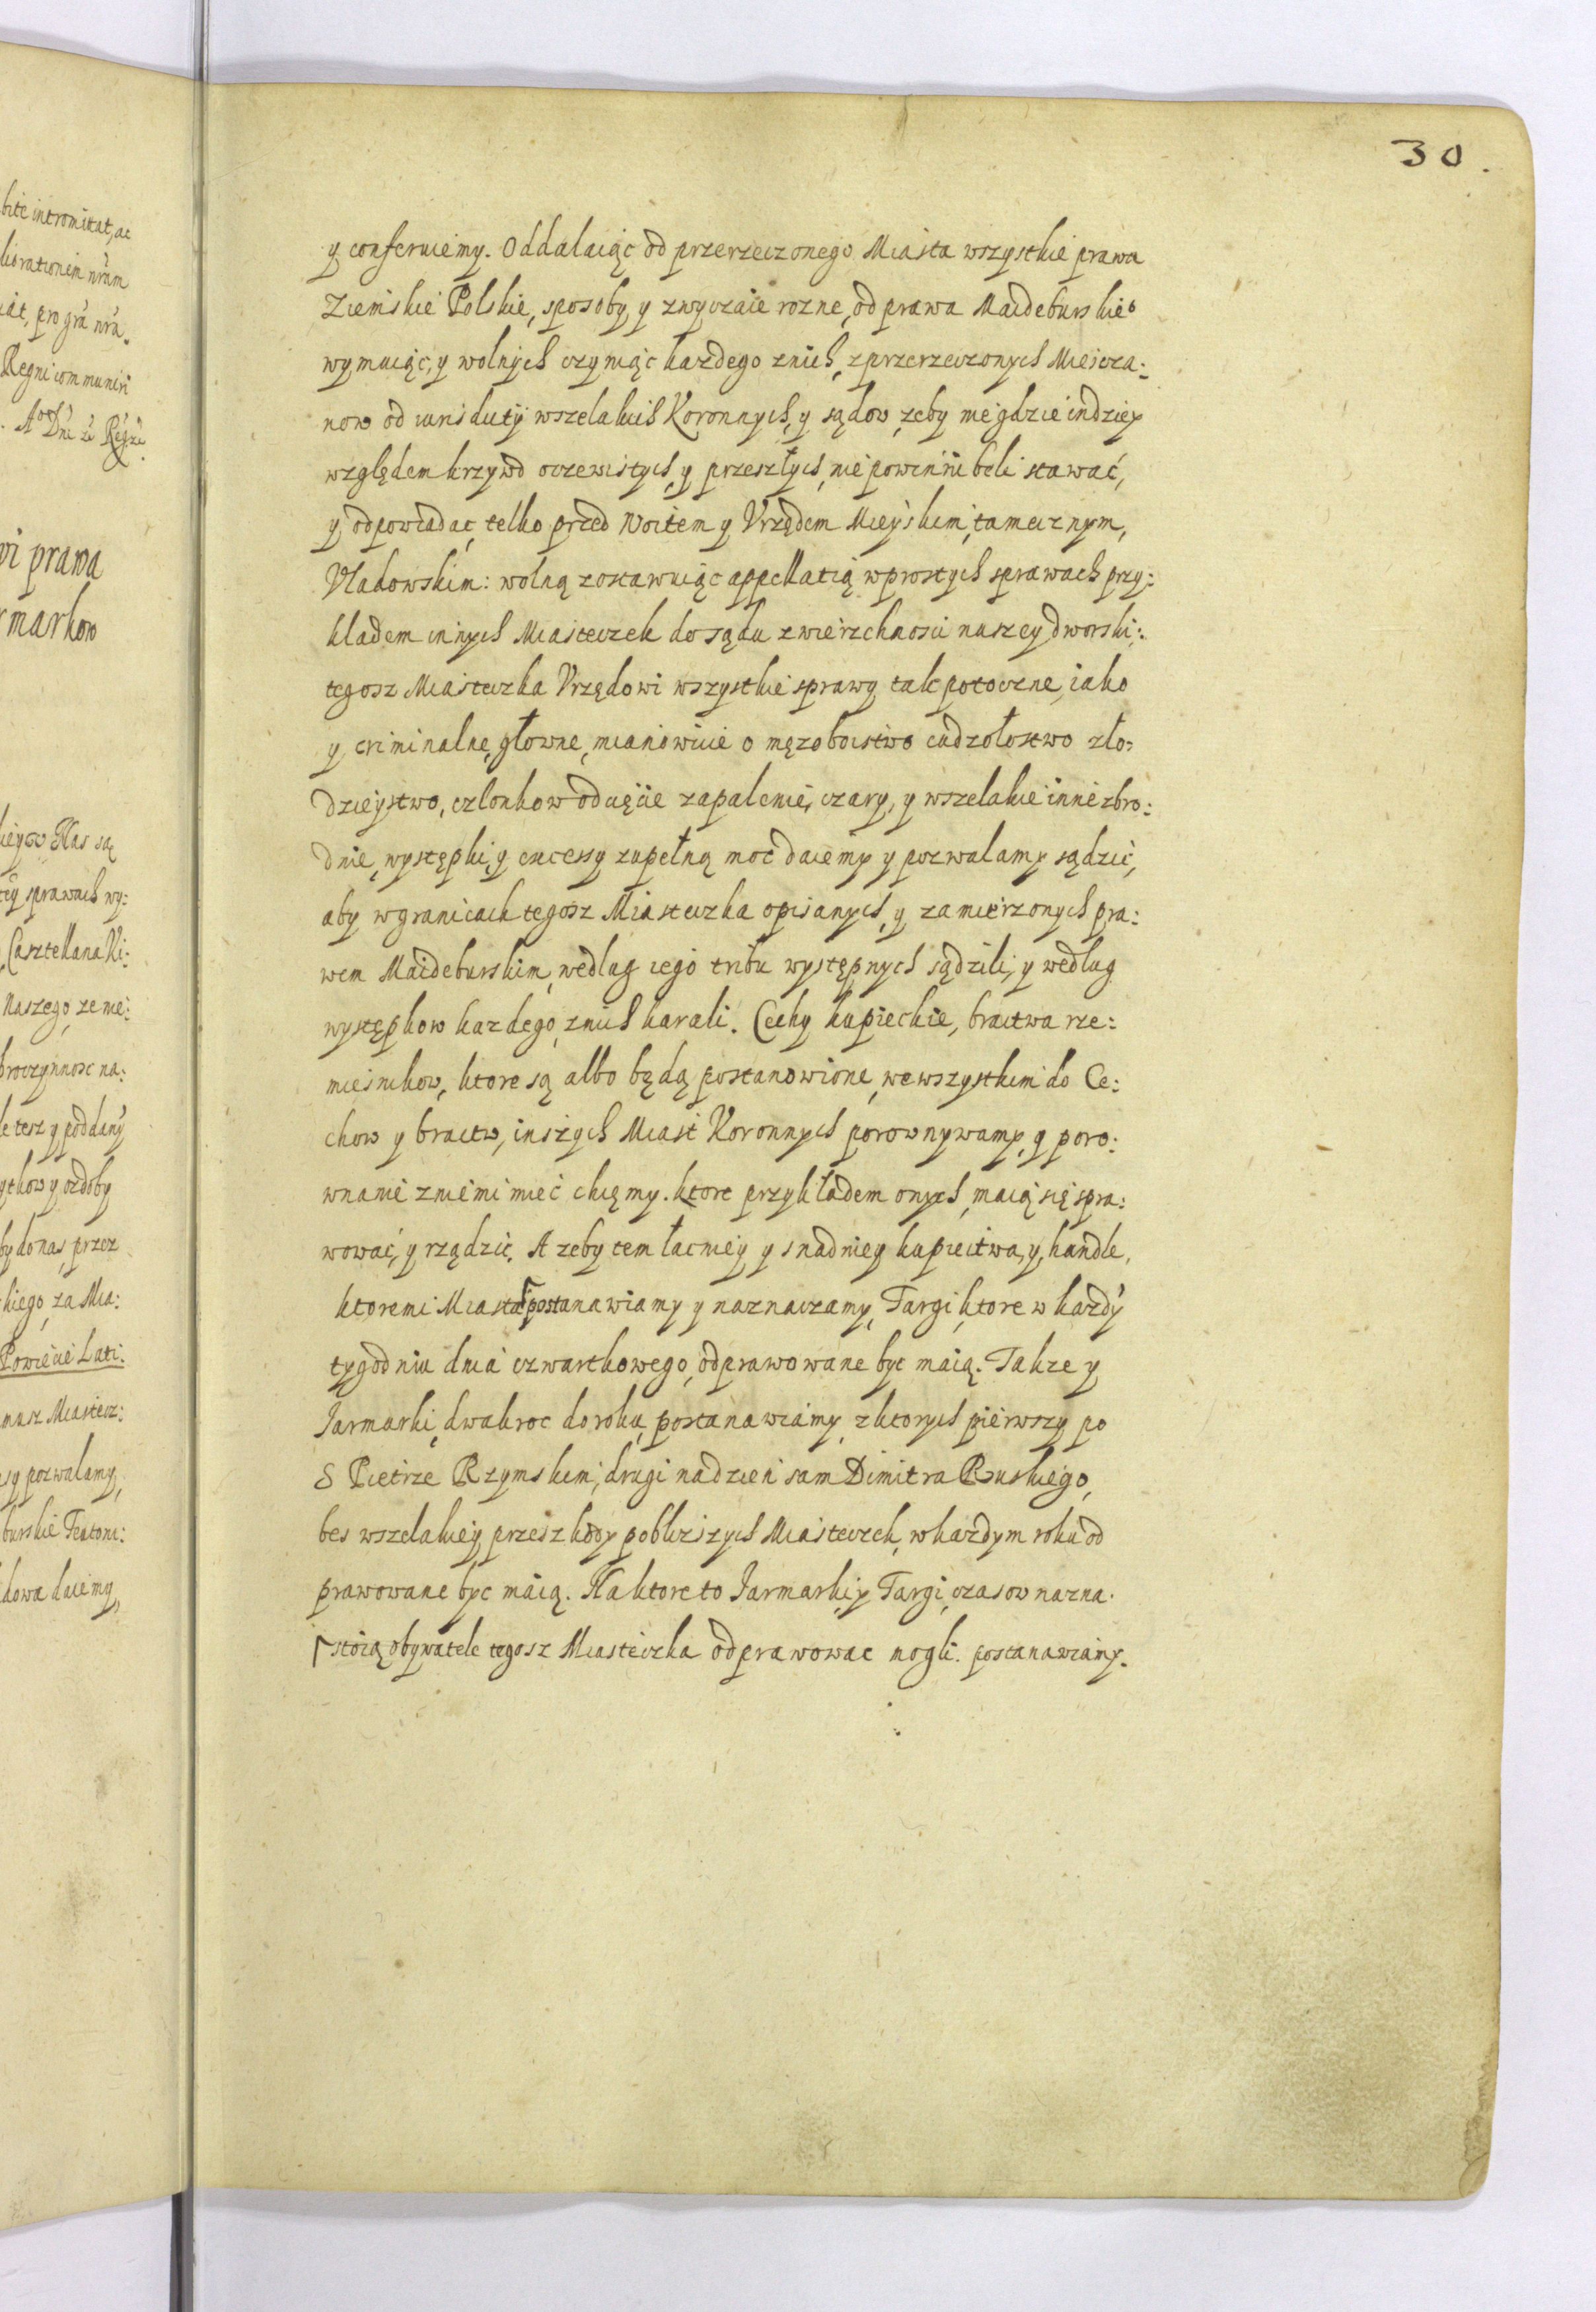 30.
y conferuiemy. Oddalaiąc od przerzeczonego Miasta wszystkie prawa
Ziemskie Polskie, sposoby, y zwyczaie rozne, od prawa Maideburskie°
wymuiąc, y wolnych czyniąc kazdego znich, zprzerzeczonych Miescza:
now od iurisdictÿ wszelakich Koronnych, y sądow, zeby nie gdzie indziey
względem krzywd oczewistych, y przeszłych, nie powinni beli stawać,
y odpowiadać, telko przed Woitem y Vrzędem Mieyskim, tamecznym,
Vladowskim: wolną zostawuiąc appellatią wprostych sprawach przy:
kladem innych Miasteczek do sądu zwierzchnosci naszey dworski:.
tegosz Miasteczka Vrzędowi wszystkie sprawy tak potoczne, iako
y criminalne, głowne, mianowicie o męzoboistwo cudzołostwo zło:
dzieystwo, czlonkow oducięcie zapalenie, czary, y wszelakie inne zbro:
dnie, występki, y excessy zupełną moc daiemy y pozwalamy sądzić,
aby wgranicach tegosz Miasteczka opisanych, y zamierzonych pra:
wem Maideburskim, wedlug iego tribu występnych sądzili, y według
występkow kazdego, znich karali. Cechy kupieckie, bractwa rze:
mieśnikow, ktore są albo będą postanowione, we wszystkim do Ce:
chow y bractw, inszych Miast Koronnych porownywamy, y poro:
wnanie zniemi mieć chcęmy. ktore przykładem onych, maią się spra:
wować, y rządzić. A zeby tem łacniey y snadniey kupiectwa, y, handle,
ktoremi Miasta postanawiamy y naznaczamy, Targi, ktore w kazdÿ
tygodniu dnia czwartkowego, odprawowane byc maią. Takze y
Jarmarki, dwakroc do roku, postanawiamy, zktorych pierwszy po
S Pietrze Rzymskim, drugi nadzien sam Dimitra Ruskiego,
bes wszelakiey przeszkody poblizszych Miasteczek, wkazdym roku od
prawowane byc maią. Na ktore to Jarmarki, y Targi, czasow nazna.
stoią obywatele tegosz Miasteczka odprawowac mogli. postanawiamy.